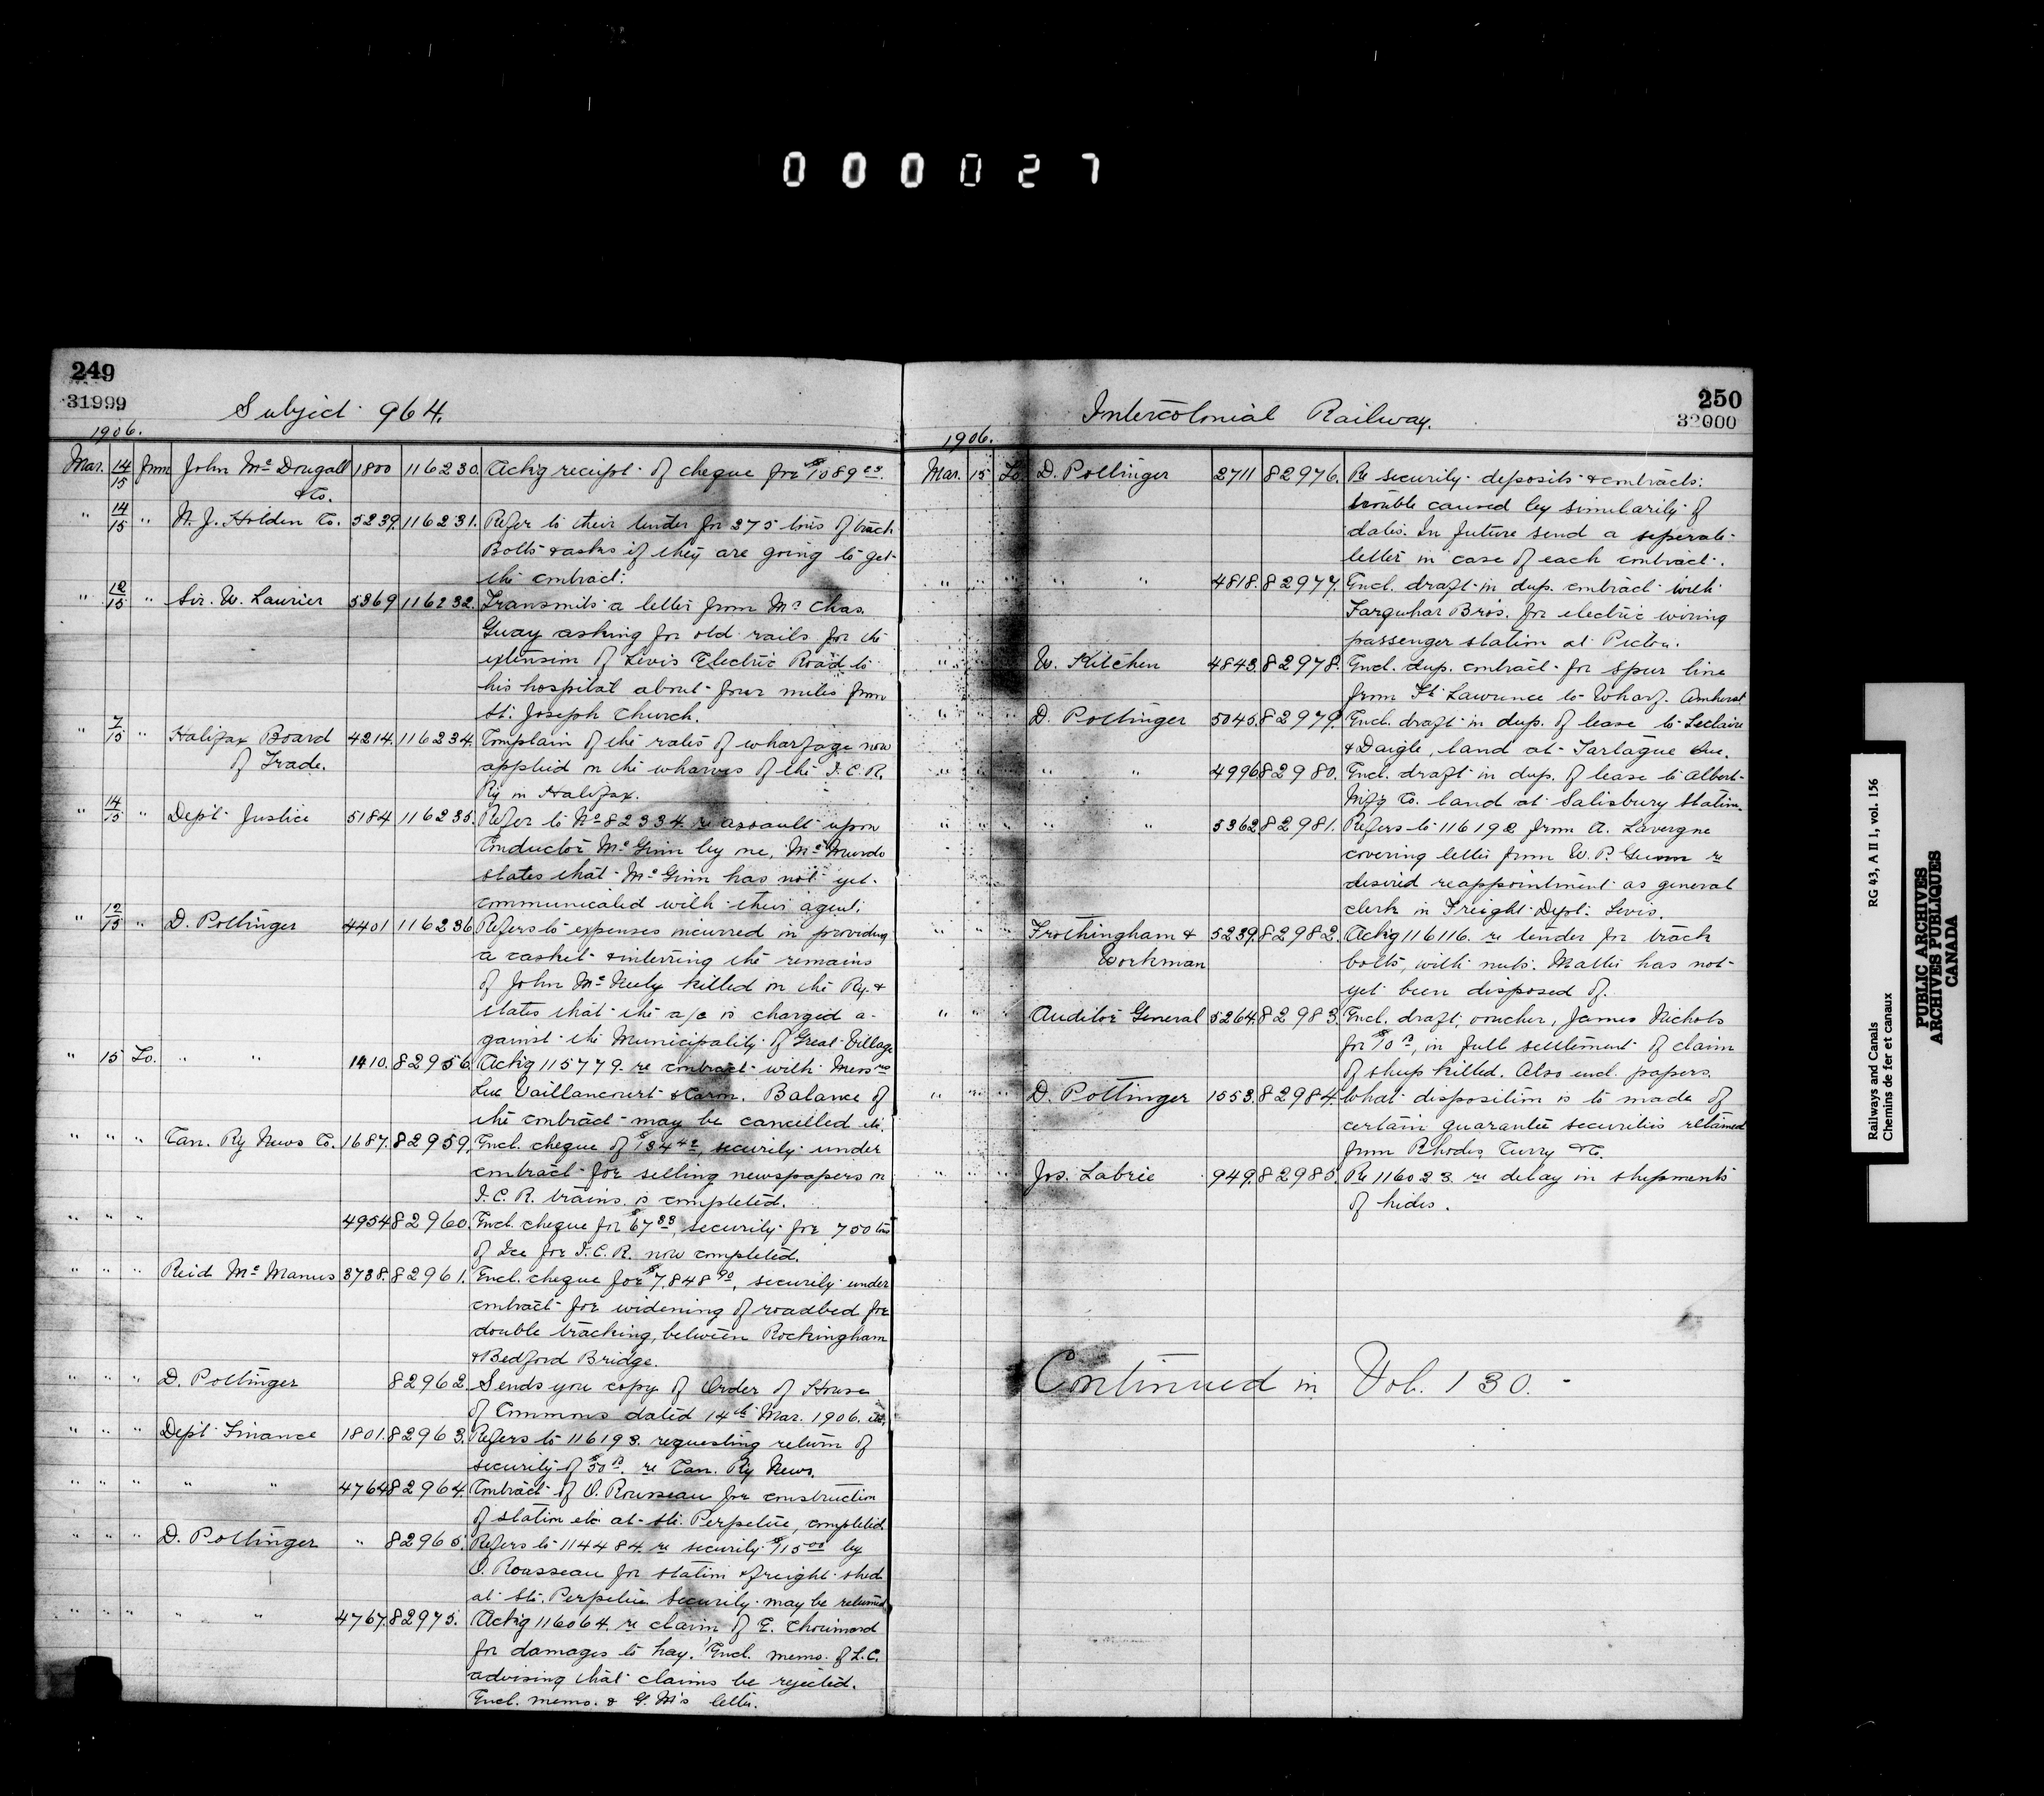 000027
249
31999
Subject 964.
1906.
Mar. 14/15 from John McDougall 1800 116230. Ackg receipt of cheque for $1089
& Co.
" 14/15 " N. J. Holden Co. 5239. 116231. Refer to their tender for 275 tons of track
Bolts & asks if they are going to get
the contract.
" 12/15 " Sir. W. Laurier 5369 116232. Transmits a letter from Mr Chas.
Guay asking for old rails for the
extension of Levis Electric Road to
his hospital about four miles from
St. Joseph Church.
" 7/15 " Halifax Board 4214. 116234. Complain of the rates of wharfage now
of Trade. applied on the wharves of the I.C.R.
Ry in Halifax.
" 14/15 " Dept Justice 5184 116235. Refer to No 82334. re assault upon
Conductor McGinn by one, McMurdo
states that McGinn has not yet
communicated with their agent.
" 12/15 " D. Pottinger 4401 116236 Refers to expenses incurred in providing
a casket & interring the remains
of John McNeely killed on the Ry. &
states that the a/c is charged a-
gainst the Municipality of Great Village
" 15 To. " " 1410. 82956. Ackg 115779. re contract with Messrs
Luc Vaillancourt & Caron. Balance of
the contract may be cancelled etc.
" " " Can. Ry News Co. 1687. 82959. Encl. cheque of $134 42, security under
contract for selling newspapers on
I.C.R. trains is completed.
" " " 4954 82960. Encl. cheque for $67 33, security for 750 tons
of Ice for I.C.R. now completed.
" " " Reid McManus 3738. 82961. Encl. cheque for $7,848 90, security under
contract for widening of roadbed for
double tracking, between Rockingham
& Bedford Bridge.
" " " D. Pottinger 82962. Sends you copy of Order of House
of Commons dated 14th Mar. 1906. etc.
" " " Dept Finance 1801. 82963. Refers to 116193. requesting return of
security of $50 re Can. Ry News.
" " " " " 4764 82964. Contract of O. Rousseau for construction
of station etc at Ste. Perpetue, completed.
" " " D. Pottinger " 82965. Refers to 114484. re security $115 00 by
O. Rousseau for station & freight shed
at Ste. Perpetue Security may be returned
" " " " " 4767. 82975. Ackg 116064. re claim of E. Chouinard
for damages to hay. Encl. memo. of L.C.
advising that claims be rejected.
Encl. memo. & G.M's letter.
250
32000
Intercolonial Railway.
1906.
Mar. 15 To. D. Pottinger 2711 82976. Re security deposits & contracts.
trouble caused by simularity of
dates. In future send a seperate
letter in case of each contract.
" " " " " 4818. 82977. Encl. draft in dup. contract with
Farquhar Bros. for electric wiring
passenger station at Pictou.
" " " W. Kitchen 4843. 82978. Encl. dup. contract for spur line
from Ft Lawrence to Wharf. Amherst
" " " D. Pottinger 5045. 82979. Encl. draft in dup. of lease to Leclaire
& Daigle, land at Tartague Que.
" " " " " 4996 82980. Encl. draft in dup. of lease to Albert
Mf'g Co. land at Salisbury Station.
" " " " " 5362 82981. Refers to 116192 from A. Lavergne
covering letter from W. P. Gunn re
desired reappointment as general
clerk in Freight Dept. Levis.
" " " Frothingham & 5239. 82982. Ackg 116116. re tender for track
Workman bolts, with nuts. Matter has not
yet been disposed of.
" " " Auditor General 5264. 82983. Encl. draft, voucher, James Nichols
for $10, in full settlement of claim
of sheep killed. Also encl. papers.
" " " D. Pottinger 1553. 82984. What disposition is to made of
certain guarantee securities retained
from Rhodes, Curry & Co.
" " " Jos. Labrie 949. 82985. Re 116023. re delay in shipments
of hides.
Continued in Vol. 130.-
Railways and Canals RG 43, A II 1, vol. 156
Chemins de fer et canaux
PUBLIC ARCHIVES
ARCHIVES PUBLIQUES
CANADA